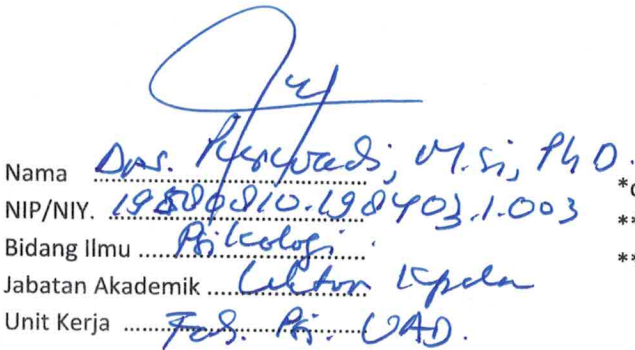 Nama Drs. Purwadi, M.Si, Ph D.
NIP/NIY. 19580810.198403.1.003
Bidang Ilmu Psikologi.
Jabatan Akademik Lektor Kpala
Unit Kerja Fak. Psi. UAD.